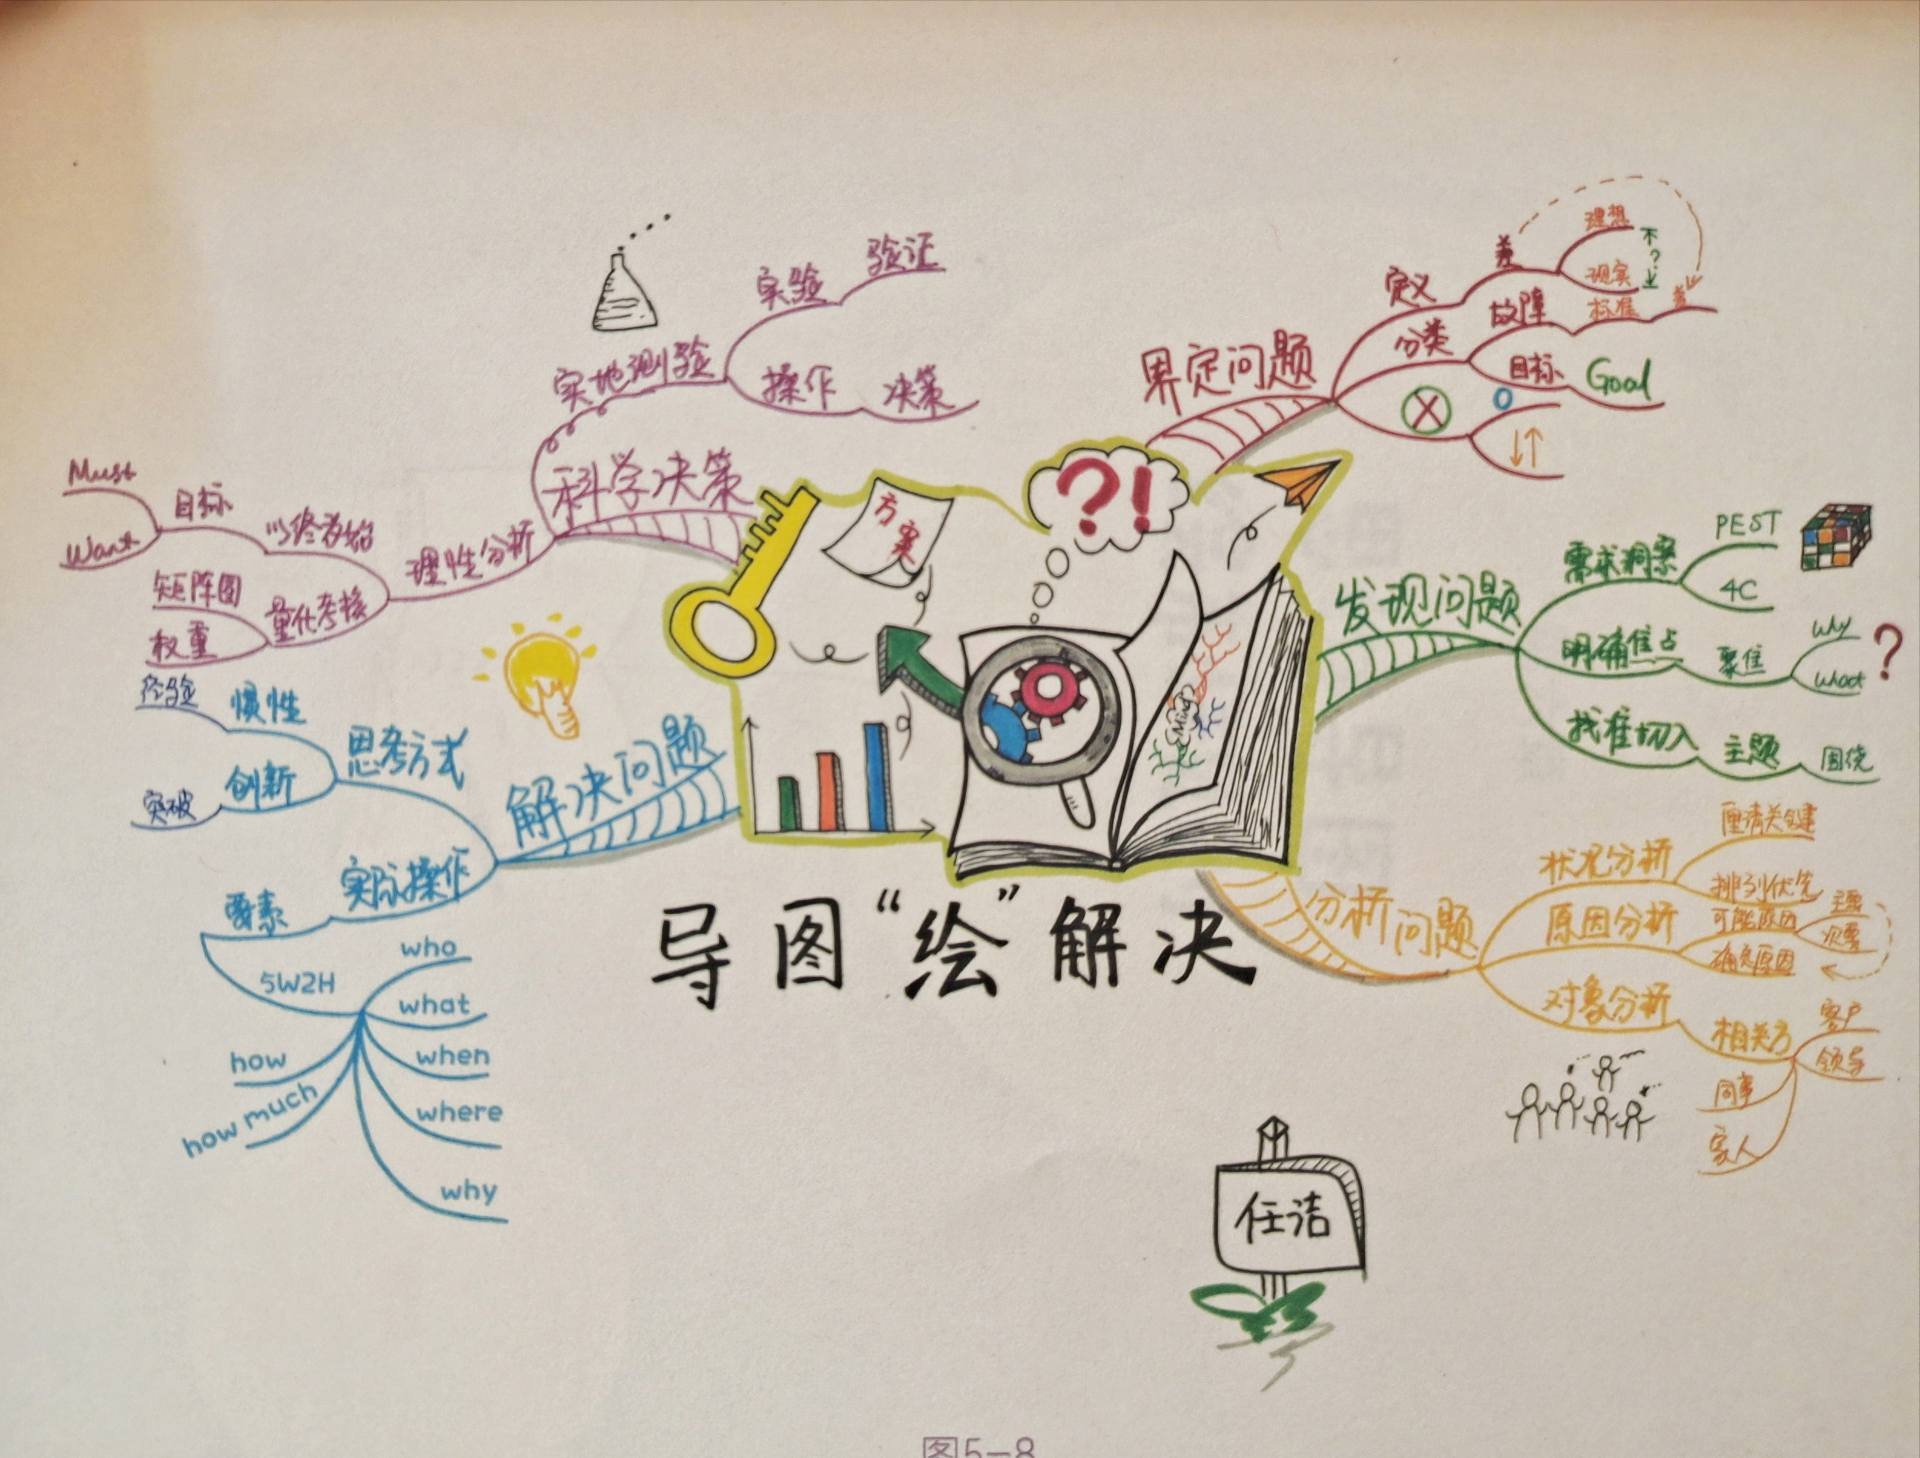 导图“绘”解决
方案
?!
Mind
界定问题
定义
差
理想
不?
现实
分类
故障
标准
差
目标
Goal
发现问题
需求洞察
PEST
4C
明确焦点
聚焦
why
what
?
找准切入
主题
围绕
分析问题
状况分析
厘清关键
排列优先
原因分析
可能原因
主要
次要
确定原因
对象分析
相关方
客户
领导
同事
家人
解决问题
思考方式
惯性
经验
创新
突破
实际操作
要素
5W2H
who
what
when
where
why
how
how much
科学决策
实地测验
实验
验证
操作
决策
理性分析
以终为始
目标
Must
Want
量化考核
矩阵图
权重
任洁
图5—8